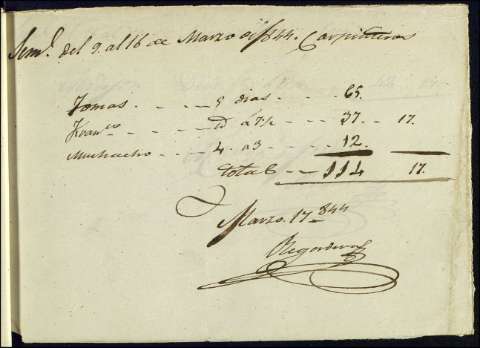 Semª. del 9. al 16 de Marzo de 1844. Carpinteros
Tomas 5 dias 65.
Franco D a 7½ 37. 17.
Muchacho 4. a 3 12.
total 114 17.
Marzo. 17 844